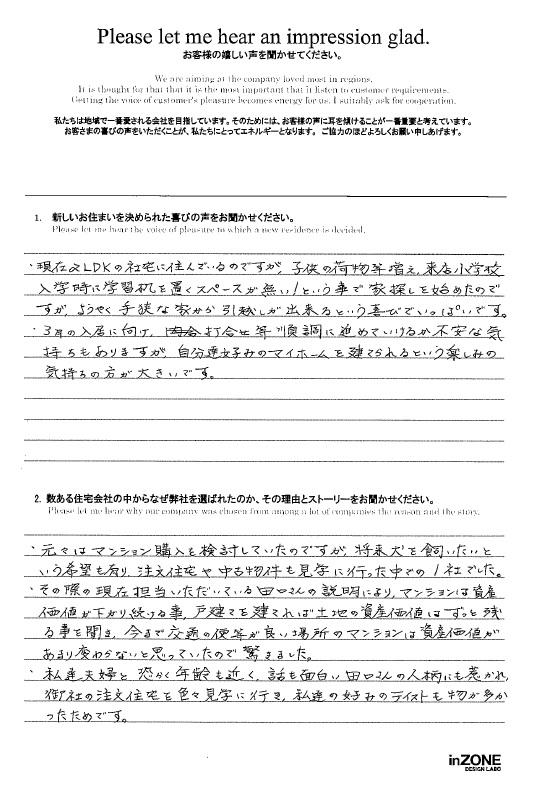 Please let me hear an impression glad.
お客様の嬉しい声を聞かせてください。
We are aiming at the company loved most in regions.
It is thought for that that it is the most important that it listen to customer requirements.
Getting the voice of customer's pleasure becomes energy for us. I suitably ask for cooperation.
私たちは地域で一番愛される会社を目指しています。そのためには、お客様の声に耳を傾けることが一番重要と考えています。
お客さまの喜びの声をいただくことが、私たちにとってエネルギーとなります。ご協力のほどよろしくお願い申しあげます。
1. 新しいお住まいを決められた喜びの声をお聞かせください。
Please let me hear the voice of pleasure to which a new residence is decided.
・現在2LDKの社宅に住んでいるのですが、子供の荷物等増え、来店小学校
入学時に学習机を置くスペースが無い!という事で家探しを始めたので
すが、ようやく手狭な家から引越しが出来るという喜びでいっぱいです。
・3月の入居に向け、打合せ等順調に進めていけるか不安な気
持ちもありますが、自分達好みのマイホームを建てられるという楽しみの
気持ちの方が大きいです。
2. 数ある住宅会社の中からなぜ弊社を選ばれたのか、その理由とストーリーをお聞かせください。
Please let me hear why our company was chosen from among a lot of companies the reason and the story.
・元々はマンション購入を検討していたのですが、将来犬を飼いたいと
いう希望も有り、注文住宅や中古物件も見学に行った中での1社でした。
・その際の現在担当いただいている田口さんの説明により、マンションは資産
価値が下がり続ける事、戸建てを建てれば土地の資産価値はずっと残
る事を聞き、今まで交通の便等が良い場所のマンションは資産価値が
あまり変わらないと思っていたので驚きました。
・私達夫婦と恐らく年齢も近く、話も面白い田口さんの人柄にも惹かれ、
御社の注文住宅を色々見学に行き、私達の好みのテイストも物が多か
ったためです。
inZONE
DESIGN LABO